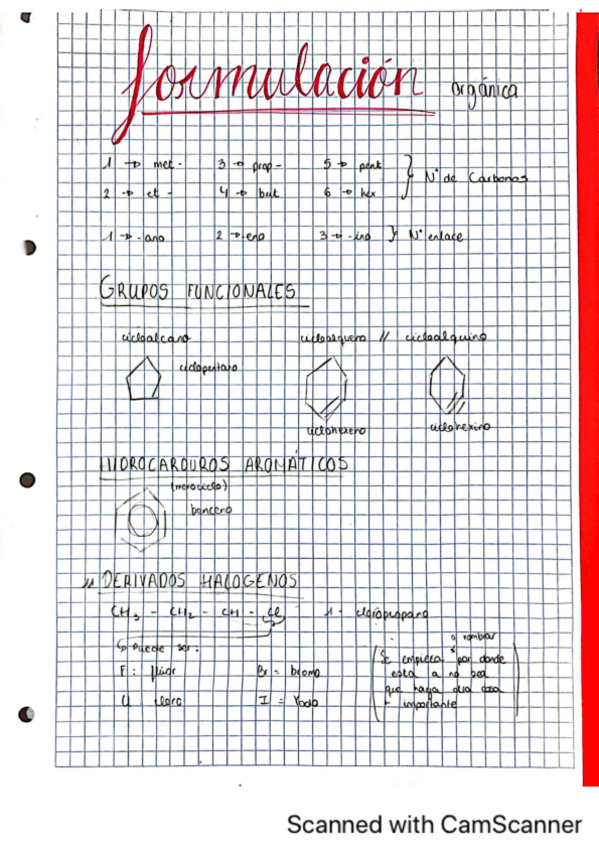 formulación orgánica
1 → met - 3 → prop - 5 → pent } Nº de Carbonos
2 → et - 4 → but 6 → hex
1 → -ano 2 → -eno 3 → -ino } Nº enlace
GRUPOS FUNCIONALES
cicloalcano cicloalqueno // cicloalquino
ciclopentano
ciclohexeno ciclohexino
HIDROCARBUROS AROMÁTICOS
(monociclo)
benceno
DERIVADOS HALOGENOS
CH3 - CH2 - CH - Cl 1 - cloropropano
↳ Puede ser:
F: flúor Br = bromo
Cl cloro I = Yodo
a nombrar
Se empieza por donde
esta a no sea
que haya otra cosa
+ importante
Scanned with CamScanner